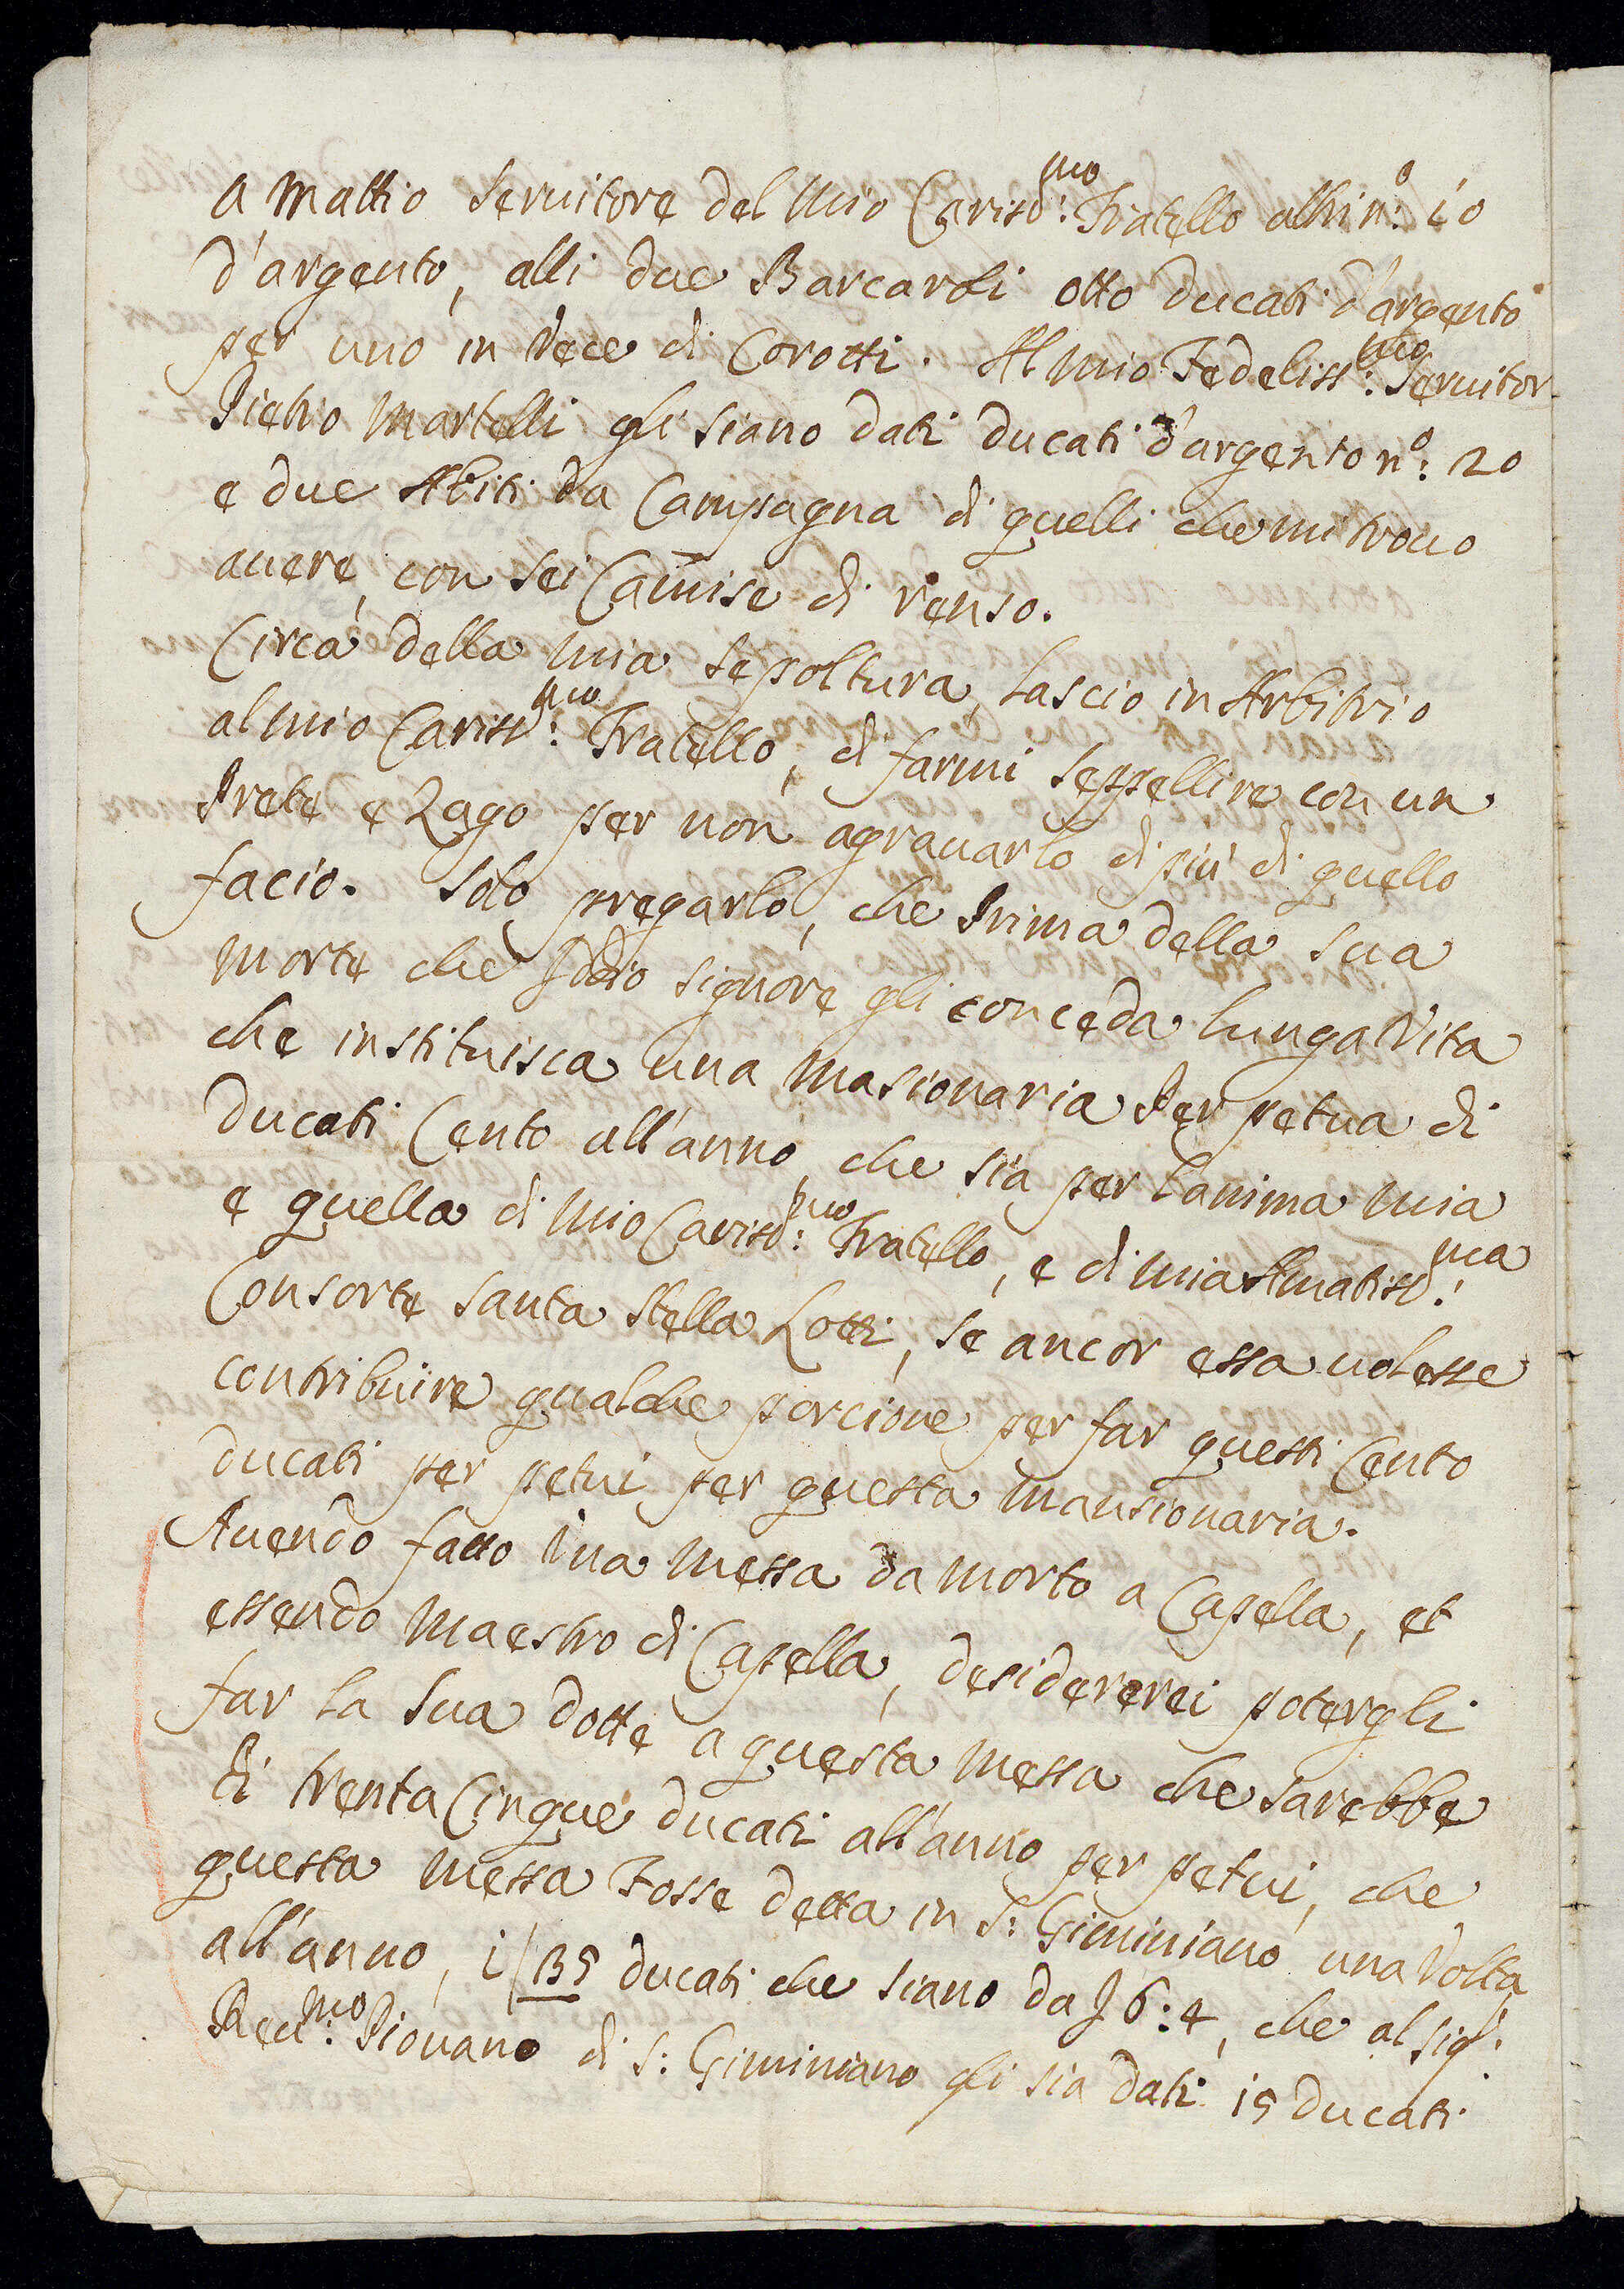 A Mattio Seruitore del mio Cariss:mo Fratello altri n:o io
d'argento, alli due Barcaroli otto ducati d'argento
per uno in Vece di Corotti. Al mio Fedeliss:mo Seruitor
Pietro Martelli gli siano dati ducati d'argento n:o 20
e due Abiti da Campagna di quelli che mi trouo
auere, con sei Camise di renso.
Circa della mia sepoltura, lascio in Arbitrio
al mio Cariss:mo Fratello, di farmi seppellire con un
Prete e Zago per non agrauarlo di più di quello
facio. Solo pregarlo, che Prima della sua
morte che Iddio signore gli conceda lunga Vita
che instituisca una masionaria Perpetua di
Ducati Cento all'anno, che sia per l'anima mia
e quella di mio Cariss:mo Fratello, e di mia Amatiss:ma
Consorte Santa Stella Lotti, se ancor essa uolesse
contribuire qualche porcione per far questi Cento
ducati perpetui per questa mansionaria.
Auendo fatto Una messa da morto a Capella, et
essendo Maestro di Capella, desidererei potergli
far la sua dotte a questa messa che sarebbe
di trenta Cinque ducati all'anno perpetui, che
questa messa Fosse detta in S: Giminiano una Volta
all'anno, i 35 ducati che siano da £ 6:4, che al sig:r
Reu:mo Piouano di S: Giminiano gli sia dati i5 ducati